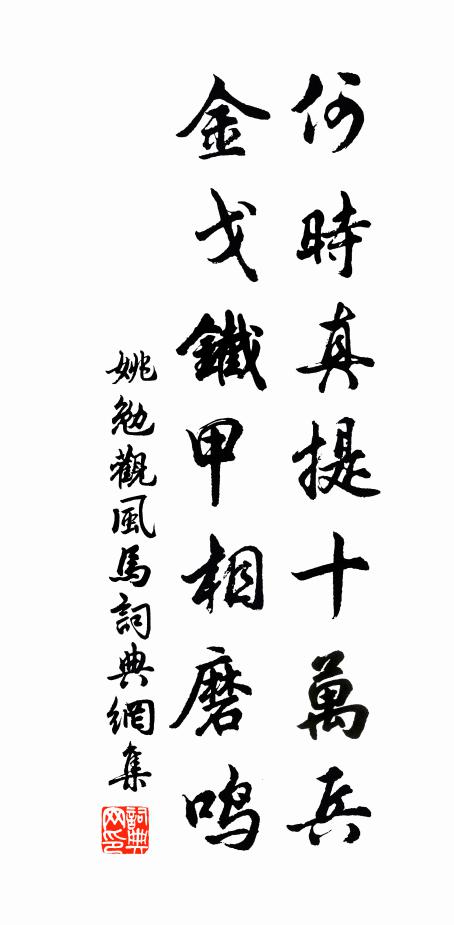 何時真提十萬兵
金戈鐵甲相磨鳴
姚勉觀風馬詞典網集
詞典网印